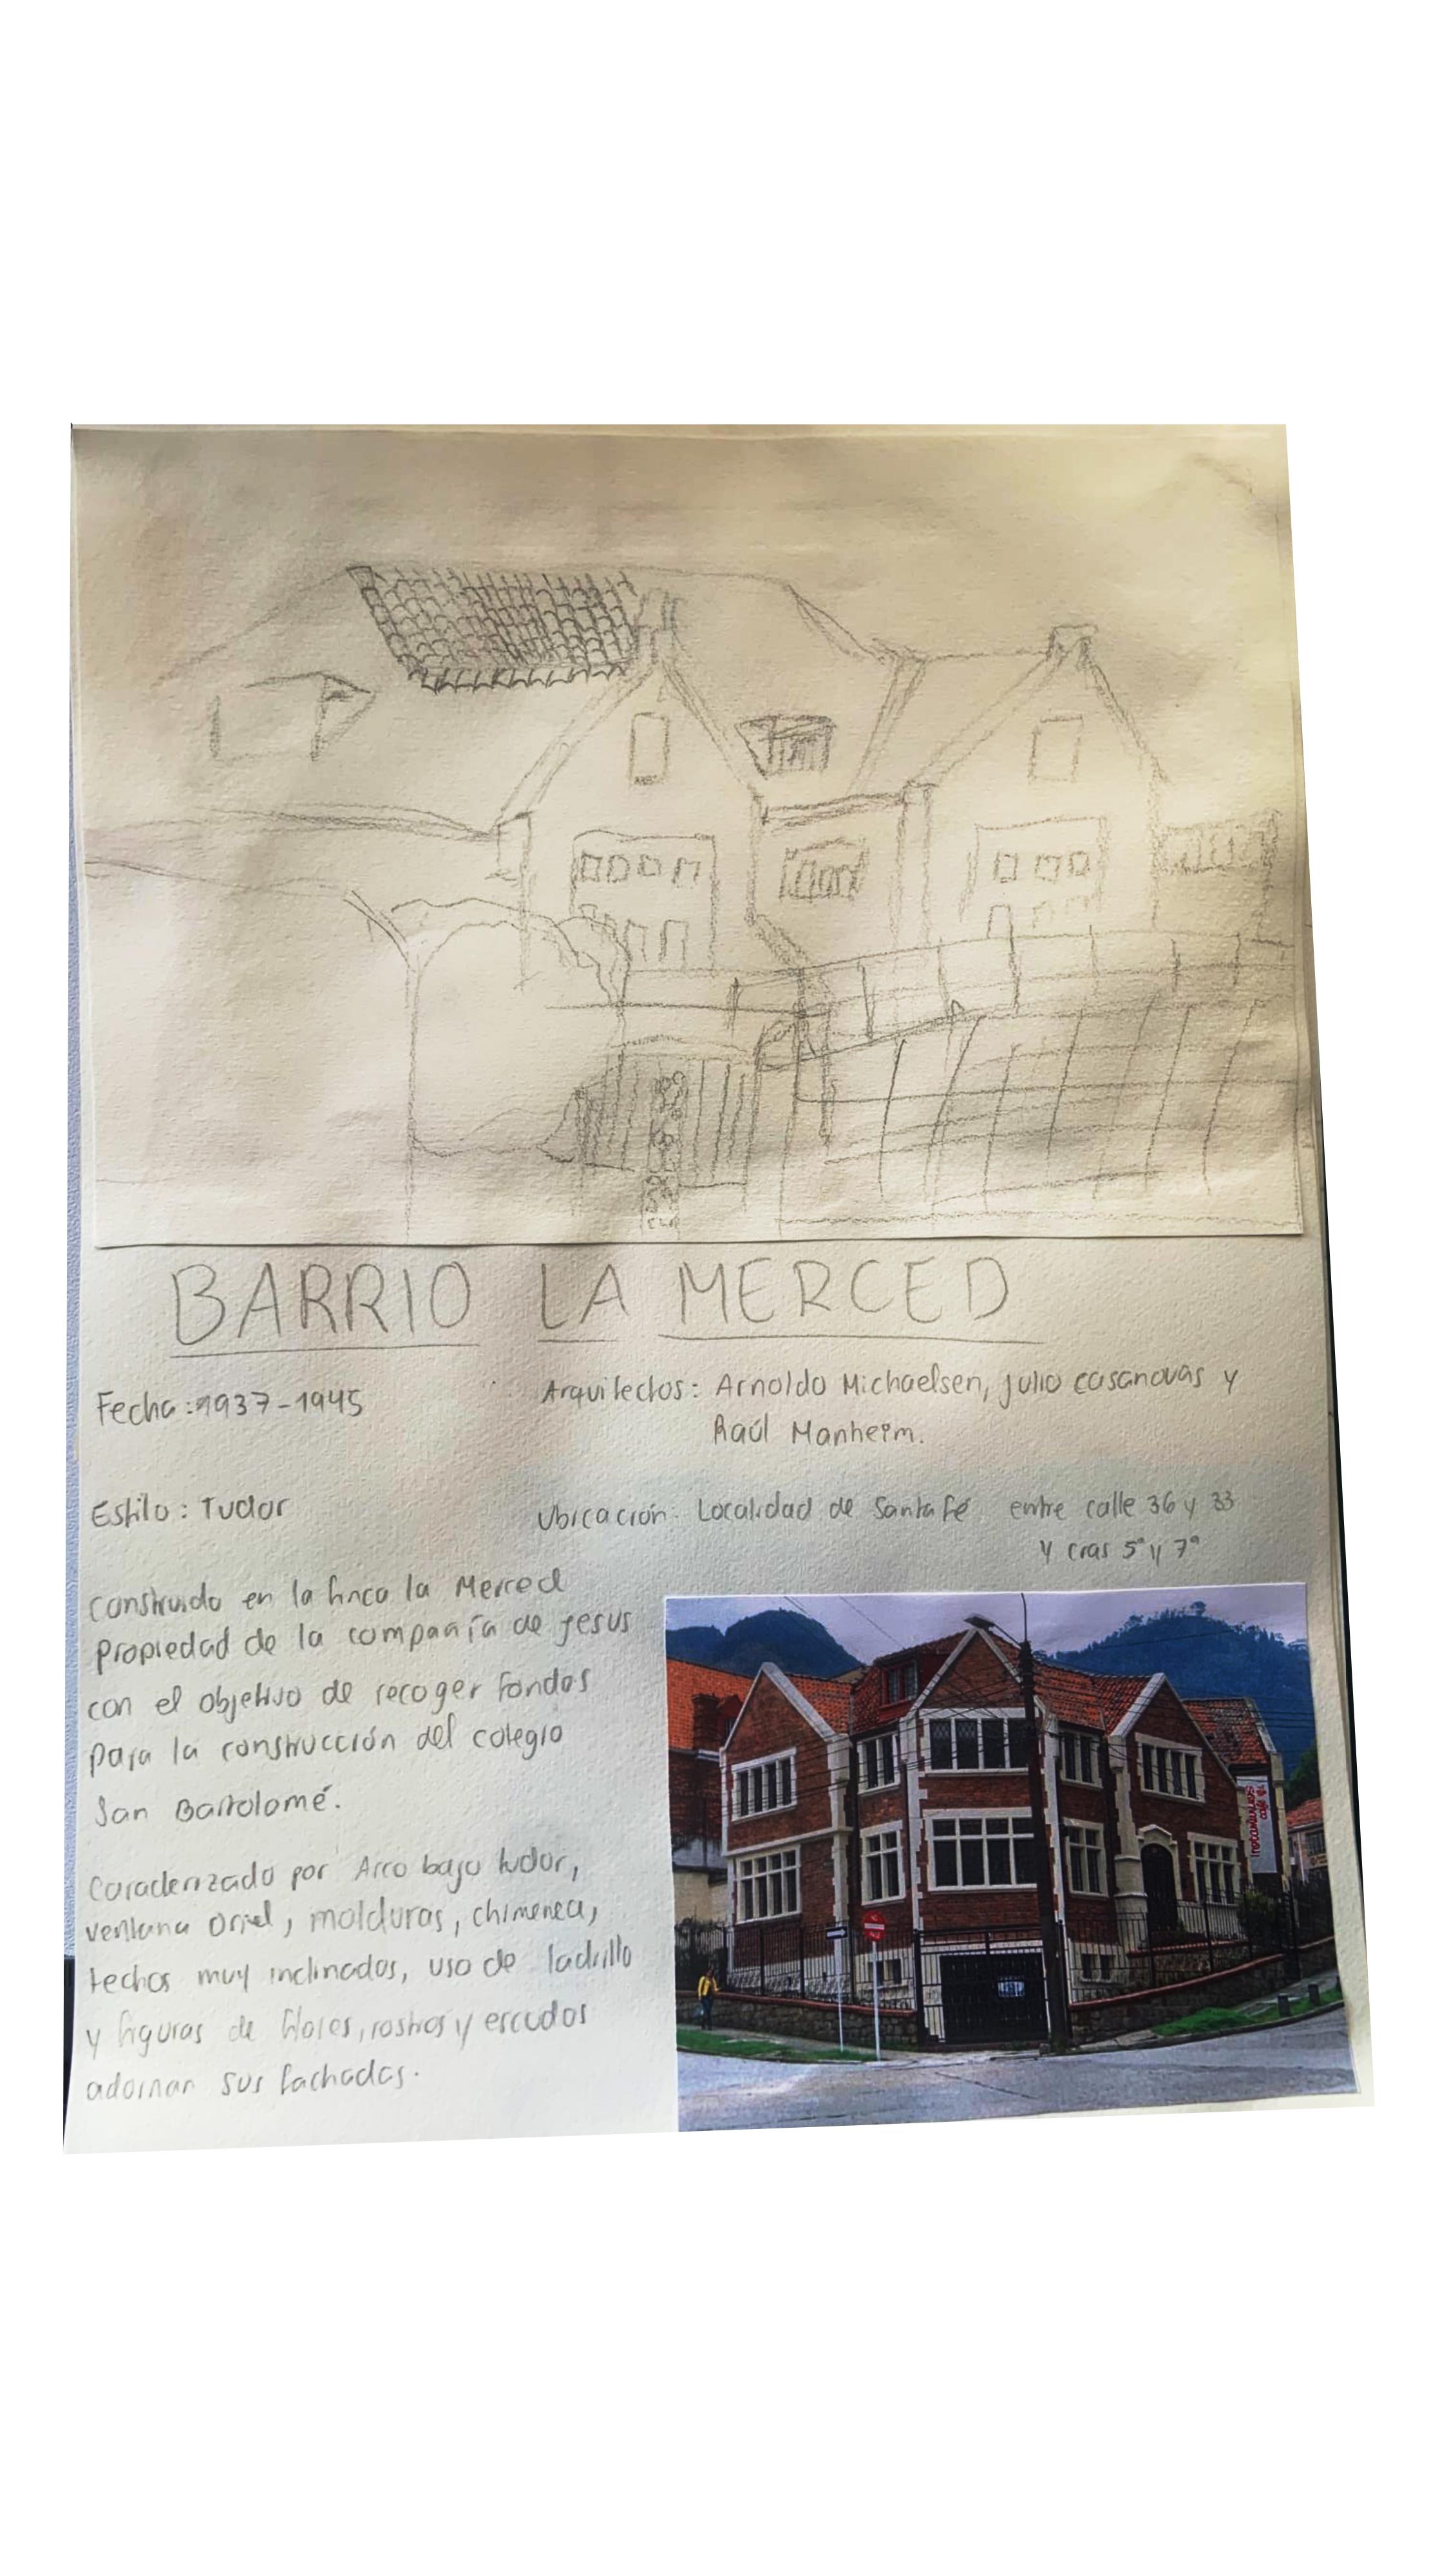 BARRIO LA MERCED
Fecha: 1937-1945
Arquitectos: Arnoldo Michaelsen, Julio casanovas y
Raúl Manheim.
Estilo: Tudor
Ubicación: Localidad de Santa fé entre calle 36 y 33
y cras 5ª y 7ª
construido en la finca la Merced
propiedad de la compañía de Jesus
con el objetivo de recoger fondos
para la construcción del colegio
San Bartolomé.
Caracterizado por Arco bajo tudor,
ventana Oriel, molduras, chimenea,
techos muy inclinados, uso de ladrillo
y figuras de flores, rostros y escudos
adornan sus fachadas.
NO
PASE
café